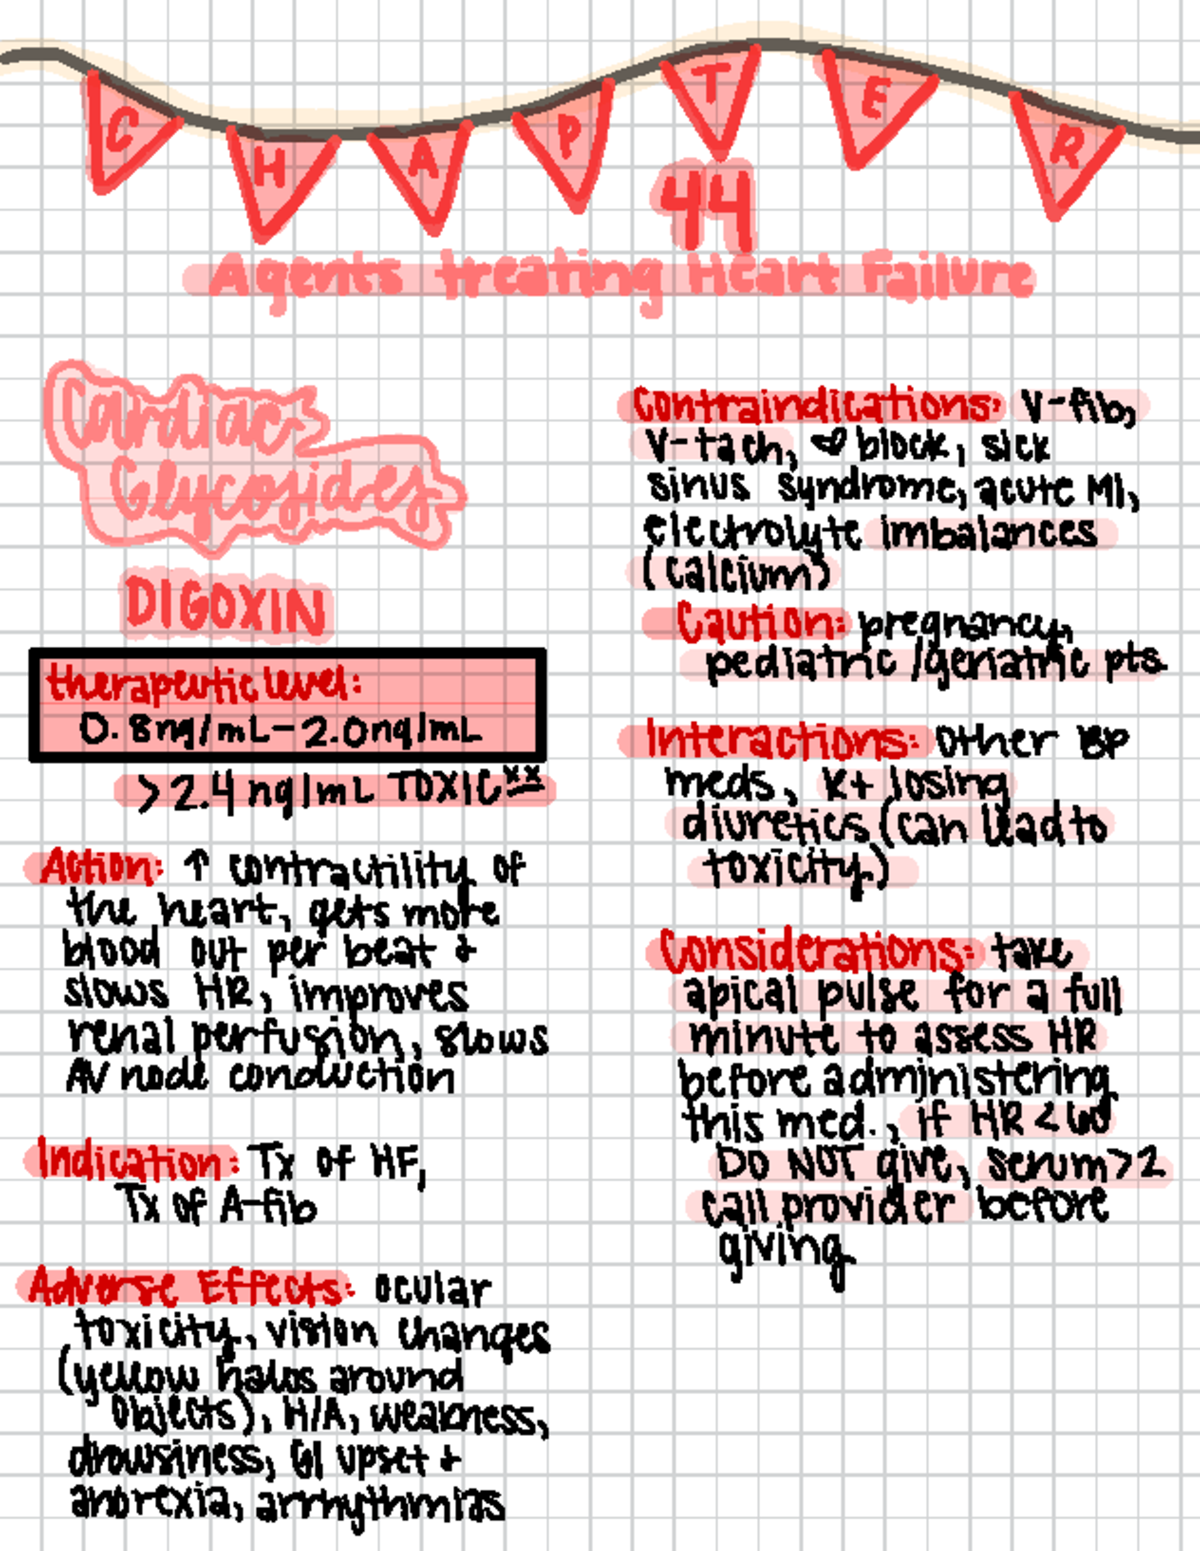 CHAPTER
44
Agents treating Heart Failure
Cardiac
Glycosides
DIGOXIN
therapeutic level:
0.8ng/mL-2.0ng/mL
>2.4 ng/mL TOXIC**
Action: ↑ contractility of
the heart, gets more
blood out per beat +
slows HR, improves
renal perfusion, slows
AV node conduction
Indication: Tx of HF,
Tx of A-fib
Adverse Effects: ocular
toxicity, vision changes
(yellow halos around
objects), H/A, weakness,
drowsiness, GI upset +
anorexia, arrhythmias
Contraindications: V-fib,
V-tach, ♡ block, sick
sinus syndrome, acute MI,
electrolyte imbalances
(calcium)
Caution: pregnancy,
pediatric /geriatric pts.
Interactions: other BP
meds, K+ losing
diuretics (can lead to
toxicity)
Considerations: take
apical pulse for a full
minute to assess HR
before administering
this med., if HR <60
DO NOT give, serum >2
call provider before
giving